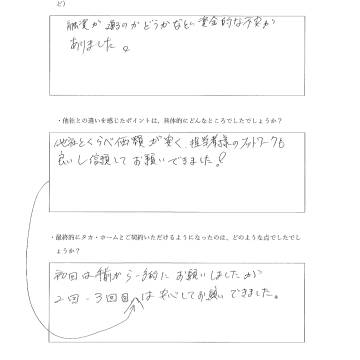 ど）
融資が通るのかどうかなど、資金的な不安が
ありました。
・他社との違いを感じたポイントは、具体的にどんなところでしたでしょうか？
他社とくらべ価額が安く、担当者様のフットワークも
良いし信頼してお願いできました！
・最終的にタカ・ホームとご契約いただけるようになったのは、どのような点でしたでしょ
うか？
初回は手前から お願いしましたが
2回・3回目は安心してお願いできました。